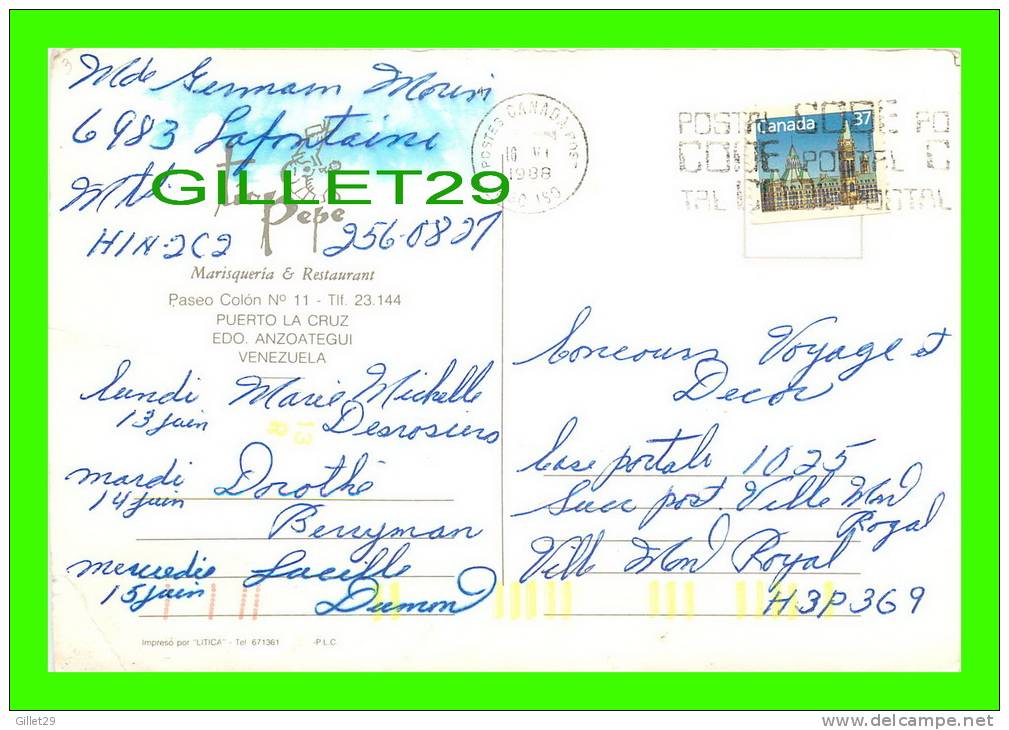 Mde Germain Morin
6983 Lafontaine
Mtl
H1N-2C2 256-0827
GILLET29
Pepe
Marisquería & Restaurant
Paseo Colón Nº 11 - Tlf. 23.144
PUERTO LA CRUZ
EDO. ANZOATEGUI
VENEZUELA
lundi Marie Michelle
13 juin Desrosiers
13
R
mardi Dorothé
14 juin Berryman
mercredie Lucille
15 juin Dumon
Impresó por "LITICA" - Tel 671361 -P.L.C.
POSTES CANADA POST
1988
POSTAL CODE PO
CODE POSTAL C
TAL POSTAL
Canada 37
Concours Voyage et
Decor
Case portale 1025
Succ post. Ville Mon
Rogal
Ville Mon Royal
H3P369
Gillet29
www.delcampe.net